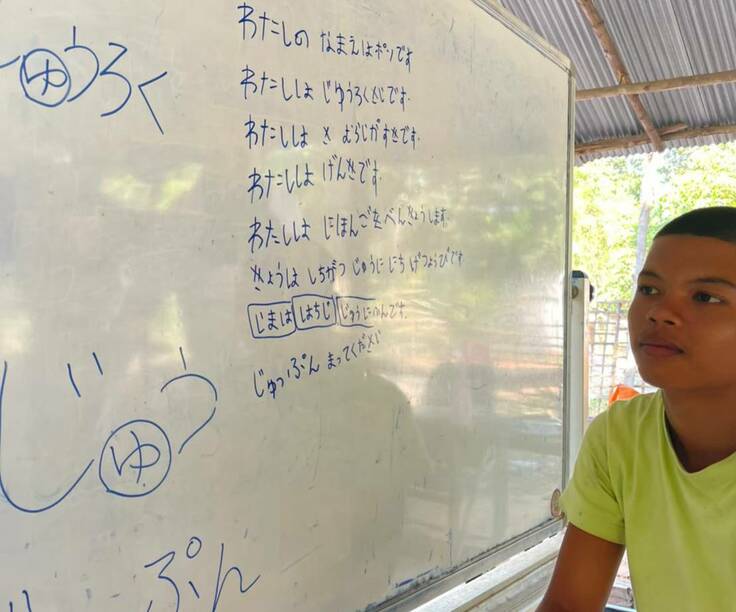 ゅうろく
わたしの なまえはポンです
わたしは じゅうろくさじです.
わたしは がすきです.
わたしは げんきです.
わたしは にほんごを べんきょうします.
きょうは しちがつ じゅうに にち げつようびです
じまは はちじ じゅうにふんです.
じゅっぷん まってください
じゅう
ぷん